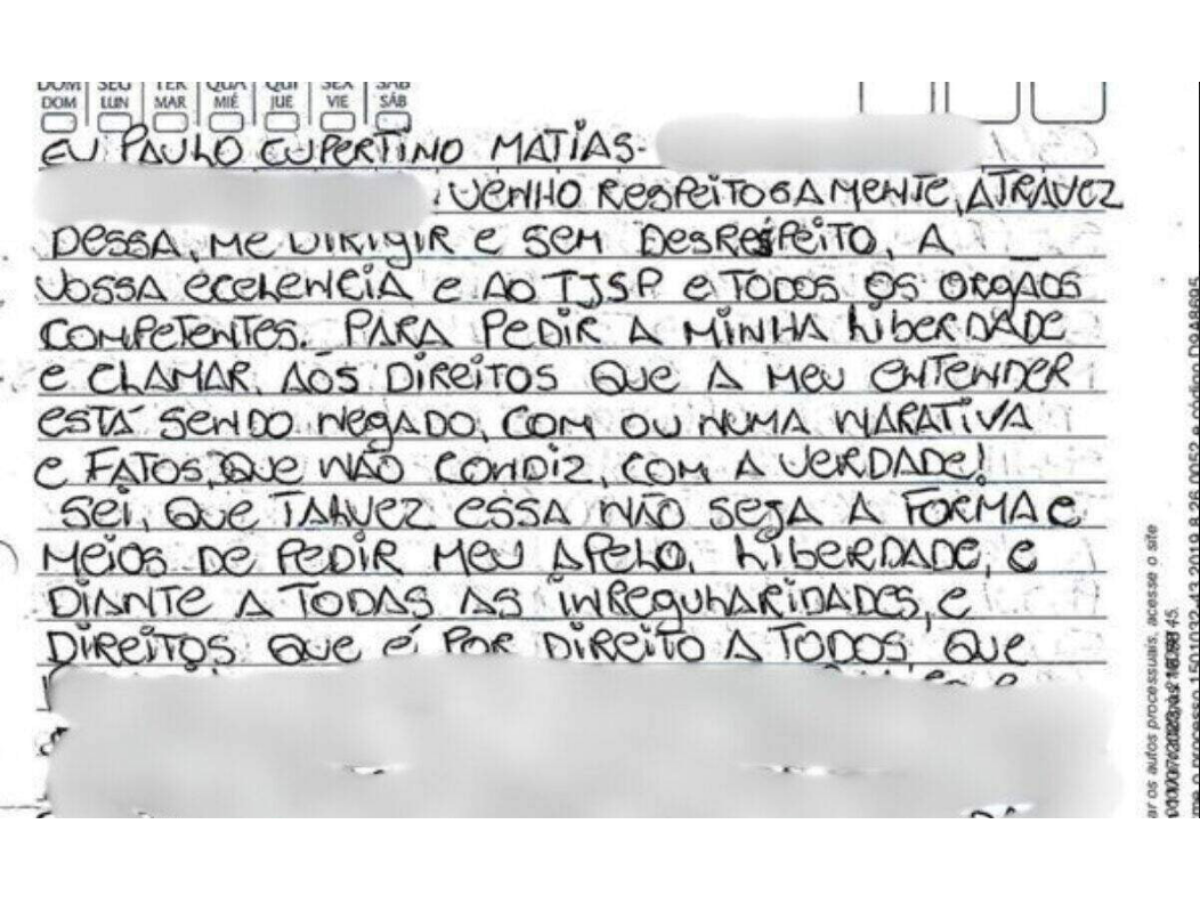 DOM SEG TER QUA QUI SEX SÁB
DOM LUN MAR MIÉ JUE VIE SÁB
EU PAULO CUPERTINO MATIAS-
VENHO RESPEITOSAMENTE, ATRAVEZ
DESSA, ME DIRIGIR E SEM DESRESPEITO, A
VOSSA ECELENCIA E AO TJSP E TODOS OS ORGÃOS
COMPETENTES. PARA PEDIR A MINHA LIBERDADE
E CLAMAR, AOS DIREITOS QUE A MEU ENTENDER
ESTÁ SENDO NEGADO, COM OU NUMA NARATIVA
E FATOS, QUE NÃO CONDIZ, COM A VERDADE!
SEI, QUE TALVEZ ESSA NÃO SEJA A FORMA E
MEIOS DE PEDIR MEU APELO, LIBERDADE, E
DIANTE A TODAS AS INREGULARIDADES, E
DIREITOS QUE É POR DIREITO A TODOS, QUE
ar os autos processuais, acesse o site